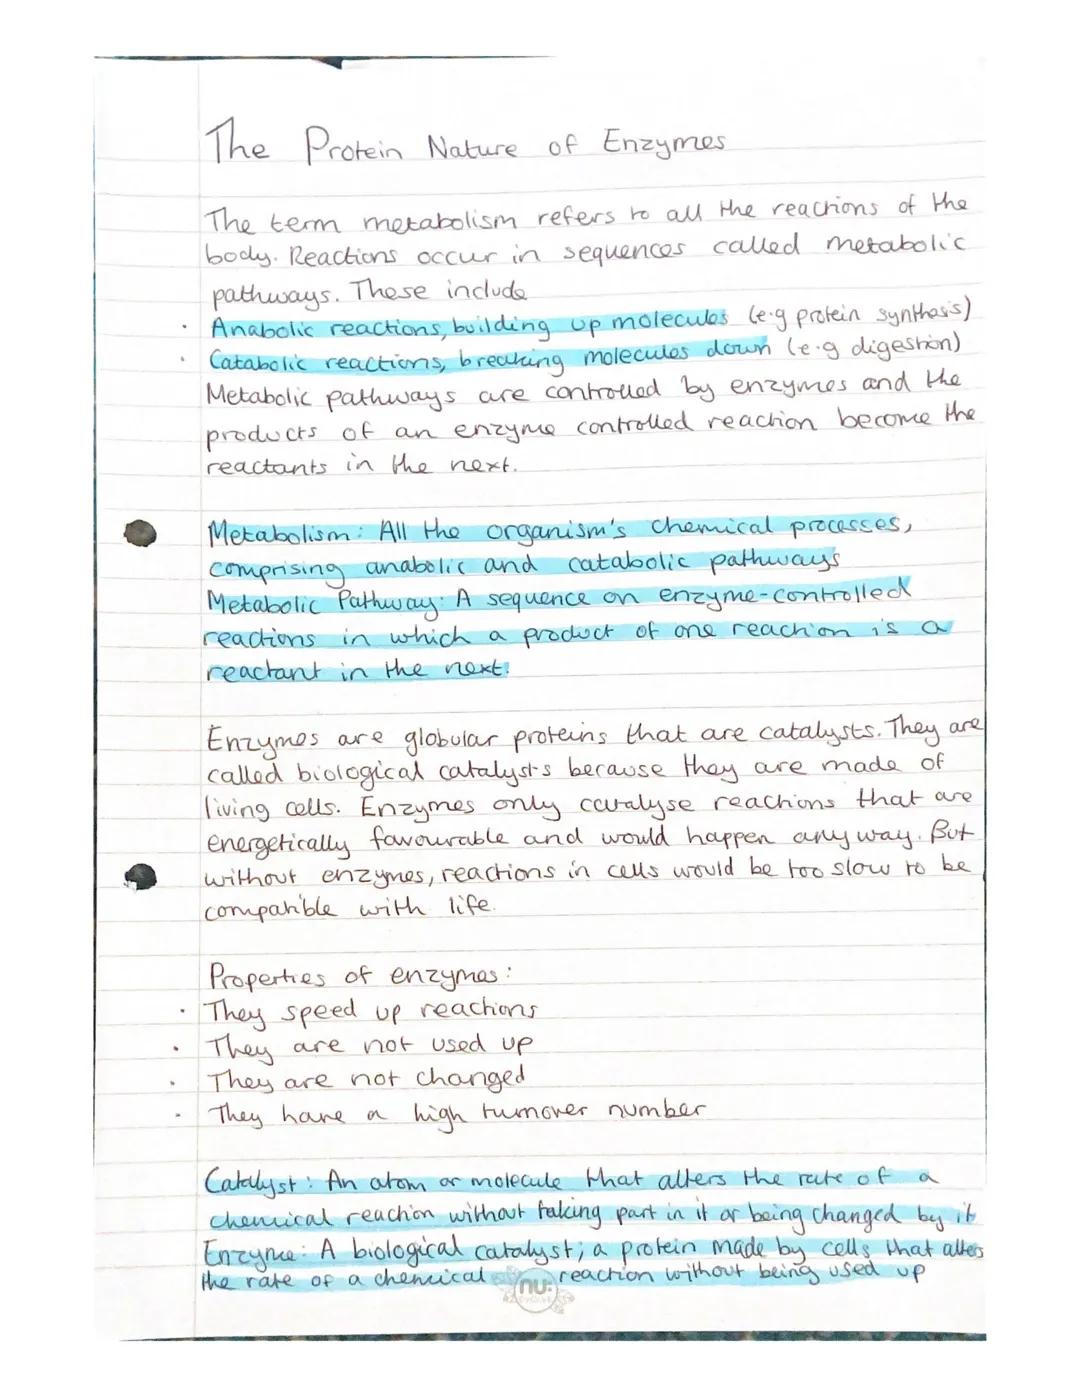 The Protein Nature of Enzymes
The term metabolism refers to all the reactions of the
body. Reactions occur in sequences called metabolic
pathways. These include
· Anabolic reactions, building up molecules (e.g protein synthesis)
· Catabolic reactions, breaking molecules down (e.g digestion)
Metabolic pathways are controlled by enzymes and the
products of an enzyme controlled reaction become the
reactants in the next.
Metabolism: All the organism's chemical processes,
comprising anabolic and catabolic pathways
Metabolic Pathway: A sequence on enzyme-controlled
reactions in which a product of one reaction is a
reactant in the next.
Enzymes are globular proteins that are catalysts. They are
called biological catalysts because they are made of
living cells. Enzymes only catalyse reactions that are
energetically favourable and would happen anyway. But
without enzymes, reactions in cells would be too slow to be
compatible with life.
Properties of enzymes:
· They speed up reactions
· They are not used up
· They are not changed
· They have a high turnover number
Catalyst: An atom or molecule that alters the rate of a
chemical reaction without taking part in it or being changed by it
Enzyme: A biological catalyst; a protein made by cells that alters
the rate of a chemical reaction without being used up
nu: